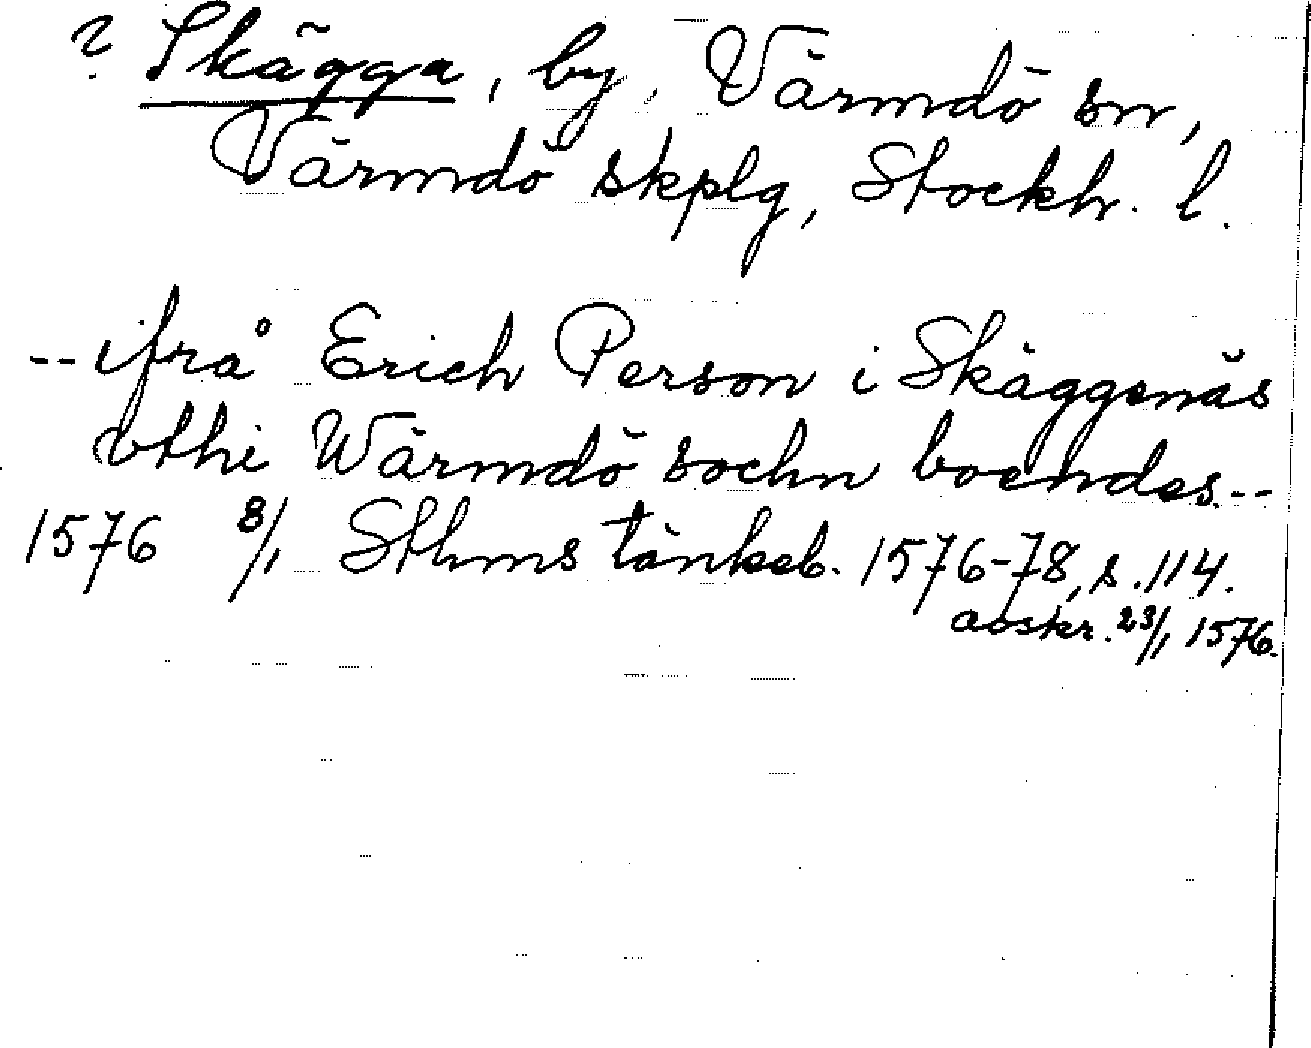 ? Skägga, by, Värmdö sn,
Värmdö skplg, Stockh. l.
-- ifrå Erich Person i Skäggenäs
vthi Wärmdö sochn boendes.--
1576 8/1 Sthms tänkeb. 1576-78, s. 114.
avskr. 23/1 1576.